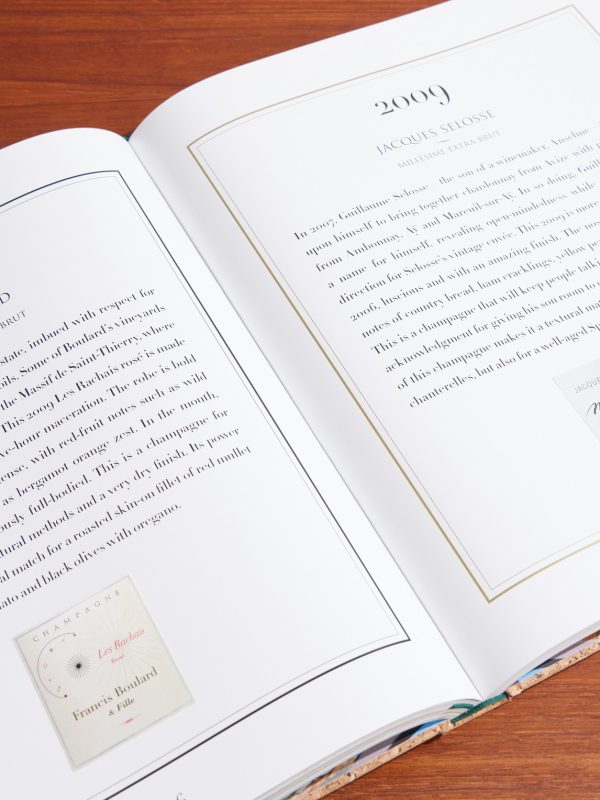 D
BRUT
state, imbued with respect for
oils. Some of Boulard's vineyards
the Massif de Saint-Thierry, where
This 2009 Les Rachais rosé is made
ve-hour maceration. The robe is bold
ense, with red-fruit notes such as wild
as bergamot orange zest. In the mouth,
ously full-bodied. This is a champagne for
tural methods and a very dry finish. Its power
al match for a roasted skin-on fillet of red mullet
ato and black olives with oregano.
CHAMPAGNE
Les Rachais
Rosé
Francis Boulard
& Fille
2009
JACQUES SELOSSE
MILLÉSIME EXTRA BRUT
In 2007, Guillaume Selosse – the son of a winemaker, Anselme
upon himself to bring together chardonnay from Avize with
from Ambonnay, Aÿ and Mareuil-sur-Aÿ. In so doing, Guill
a name for himself, revealing open-mindedness while
direction for Selosse's vintage cuvée. This 2009 is more
2006, luscious and with an amazing finish. The no
notes of country bread, ham cracklings, yellow pe
This is a champagne that will keep people talki
acknowledgment for giving his son room to
of this champagne makes it a textural mat
chanterelles, but also for a well-aged Sp
JACQU